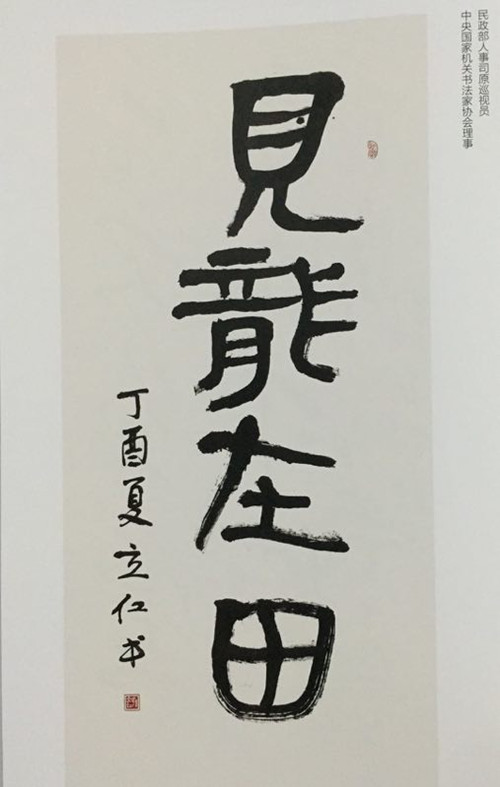 民政部人事司原巡视员
中央国家机关书法家协会理事
見龍在田
丁酉夏立仁书